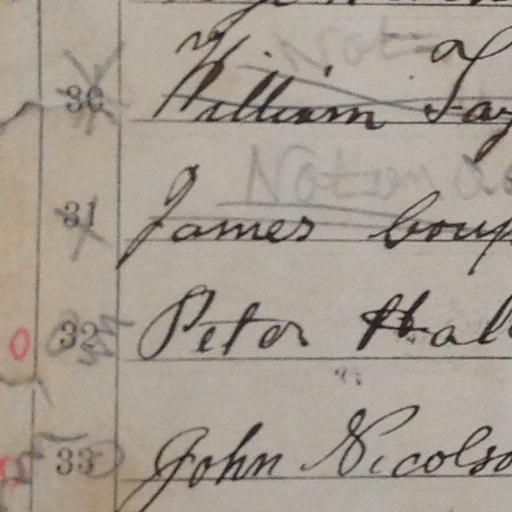 Not
30 William Tay
Not in
31 James Coup
32 Peter Hal
33 John Nicolso